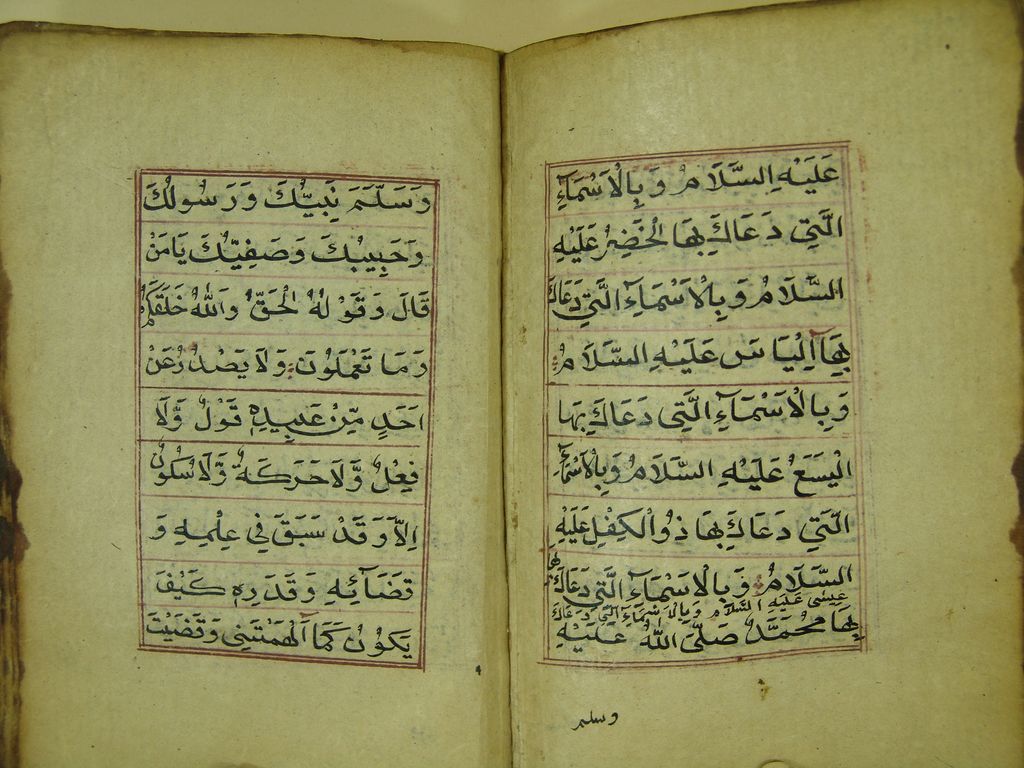 عَلَيْهِ السَّلَامُ وَبِالْاَسْمَآءِ
الَّتِي دَعَاكَ بِهَا الْخَضِرُ عَلَيْهِ
السَّلَامُ وَبِالْاَسْمَآءِ الَّتِي دَعَاكَ
بِهَا اِلْيَاسُ عَلَيْهِ السَّلَامُ
وَبِالْاَسْمَآءِ الَّتِي دَعَاكَ بِهَا
الْيَسَعُ عَلَيْهِ السَّلَامُ وَبِالْاَسْمَآءِ
الَّتِي دَعَاكَ بِهَا ذُوالْكِفْلِ عَلَيْهِ
السَّلَامُ وَبِالْاَسْمَآءِ الَّتِي دَعَاكَ بِهَا
عِيسٰى عَلَيْهِ السَّلَامُ وَبِالْاَسْمَآءِ الَّتِي دَعَاكَ
بِهَا مُحَمَّدٌ صَلَّى اللّٰهُ عَلَيْهِ
وسلم
وَسَلَّمَ نَبِيُّكَ وَرَسُولُكَ
وَحَبِيبُكَ وَصَفِيُّكَ يَامَنْ
قَالَ وَقَوْلُهُ الْحَقُّ وَاللّٰهُ خَلَقَكُمْ
وَمَا تَعْمَلُونَ وَلَا يَصْدُرُ عَنْ
اَحَدٍ مِّنْ عَبِيدِهِ قَوْلٌ وَّلَا
فِعْلٌ وَّلَا حَرَكَةٌ وَّلَا سُكُونٌ
اِلَّا وَقَدْ سَبَقَ فِي عِلْمِهِ وَ
قَضَآئِهِ وَقَدَرِهِ كَيْفَ
يَكُونُ كَمَا اَلْهَمْتَنِي وَقَضَيْتَ